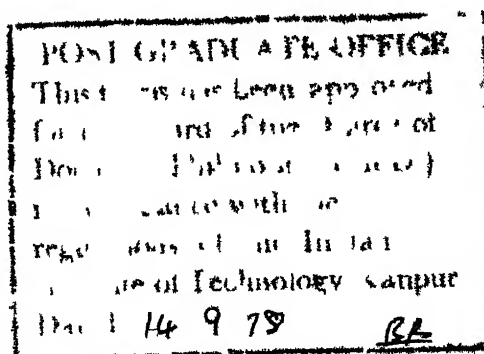 POST GRADUATE OFFICE
This thesis has been approved
for the award of the Degree of
Doctor Philosophy
in accordance with the
regulations of the Indian
Institute of Technology Kanpur
Dated 14 9 78 BR